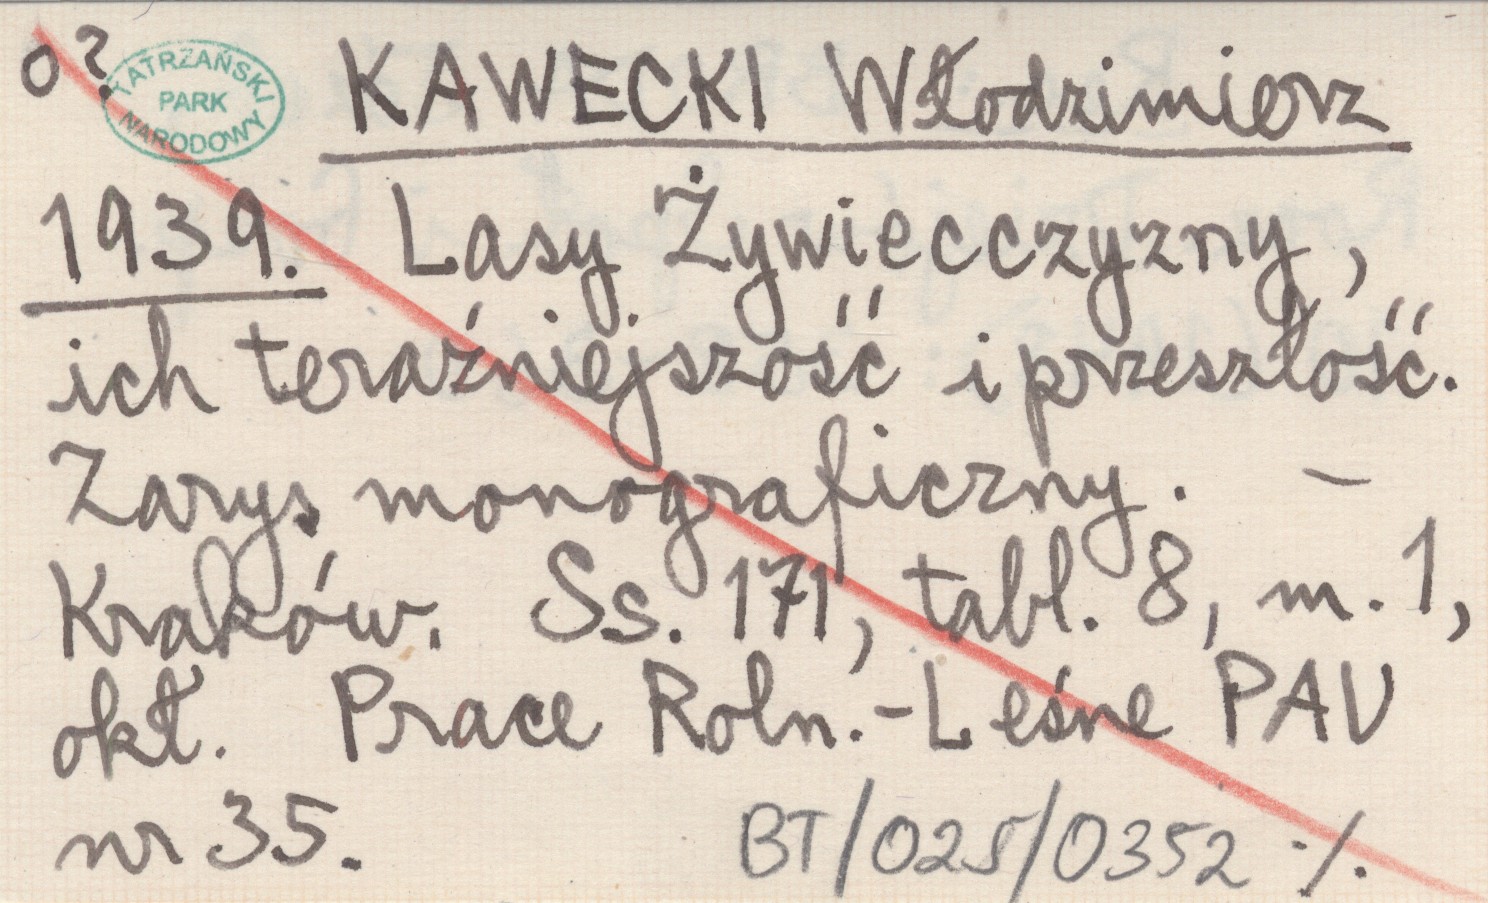 o?
TATRZAŃSKI
PARK
NARODOWY
KAWECKI Włodzimierz
1939. Lasy Żywiecczyzny,
ich teraźniejszość i przeszłość.
Zarys monograficzny. –
Kraków. Ss. 171, tabl. 8, m. 1,
okł. Prace Roln.-Leśne PAU
nr 35.
BT/025/0352 ·/.